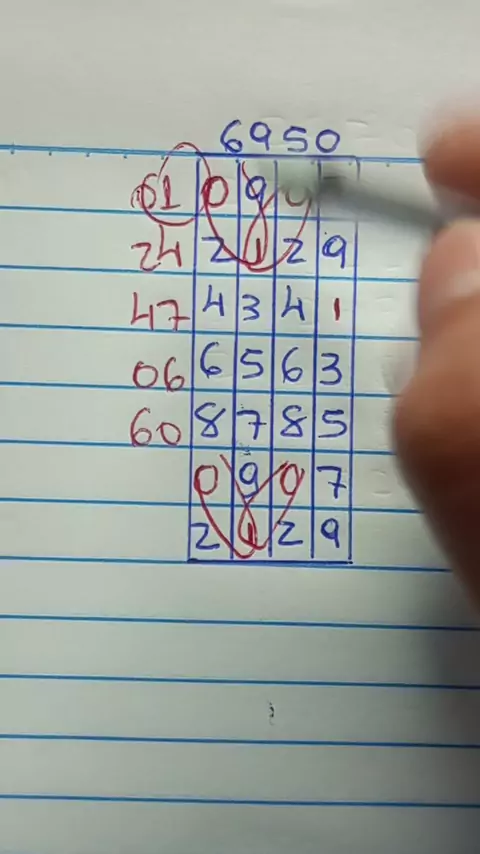 6950
61 0 9 0
24 2 1 2 9
47 4 3 4 1
06 6 5 6 3
60 8 7 8 5
0 9 0 7
2 1 2 9